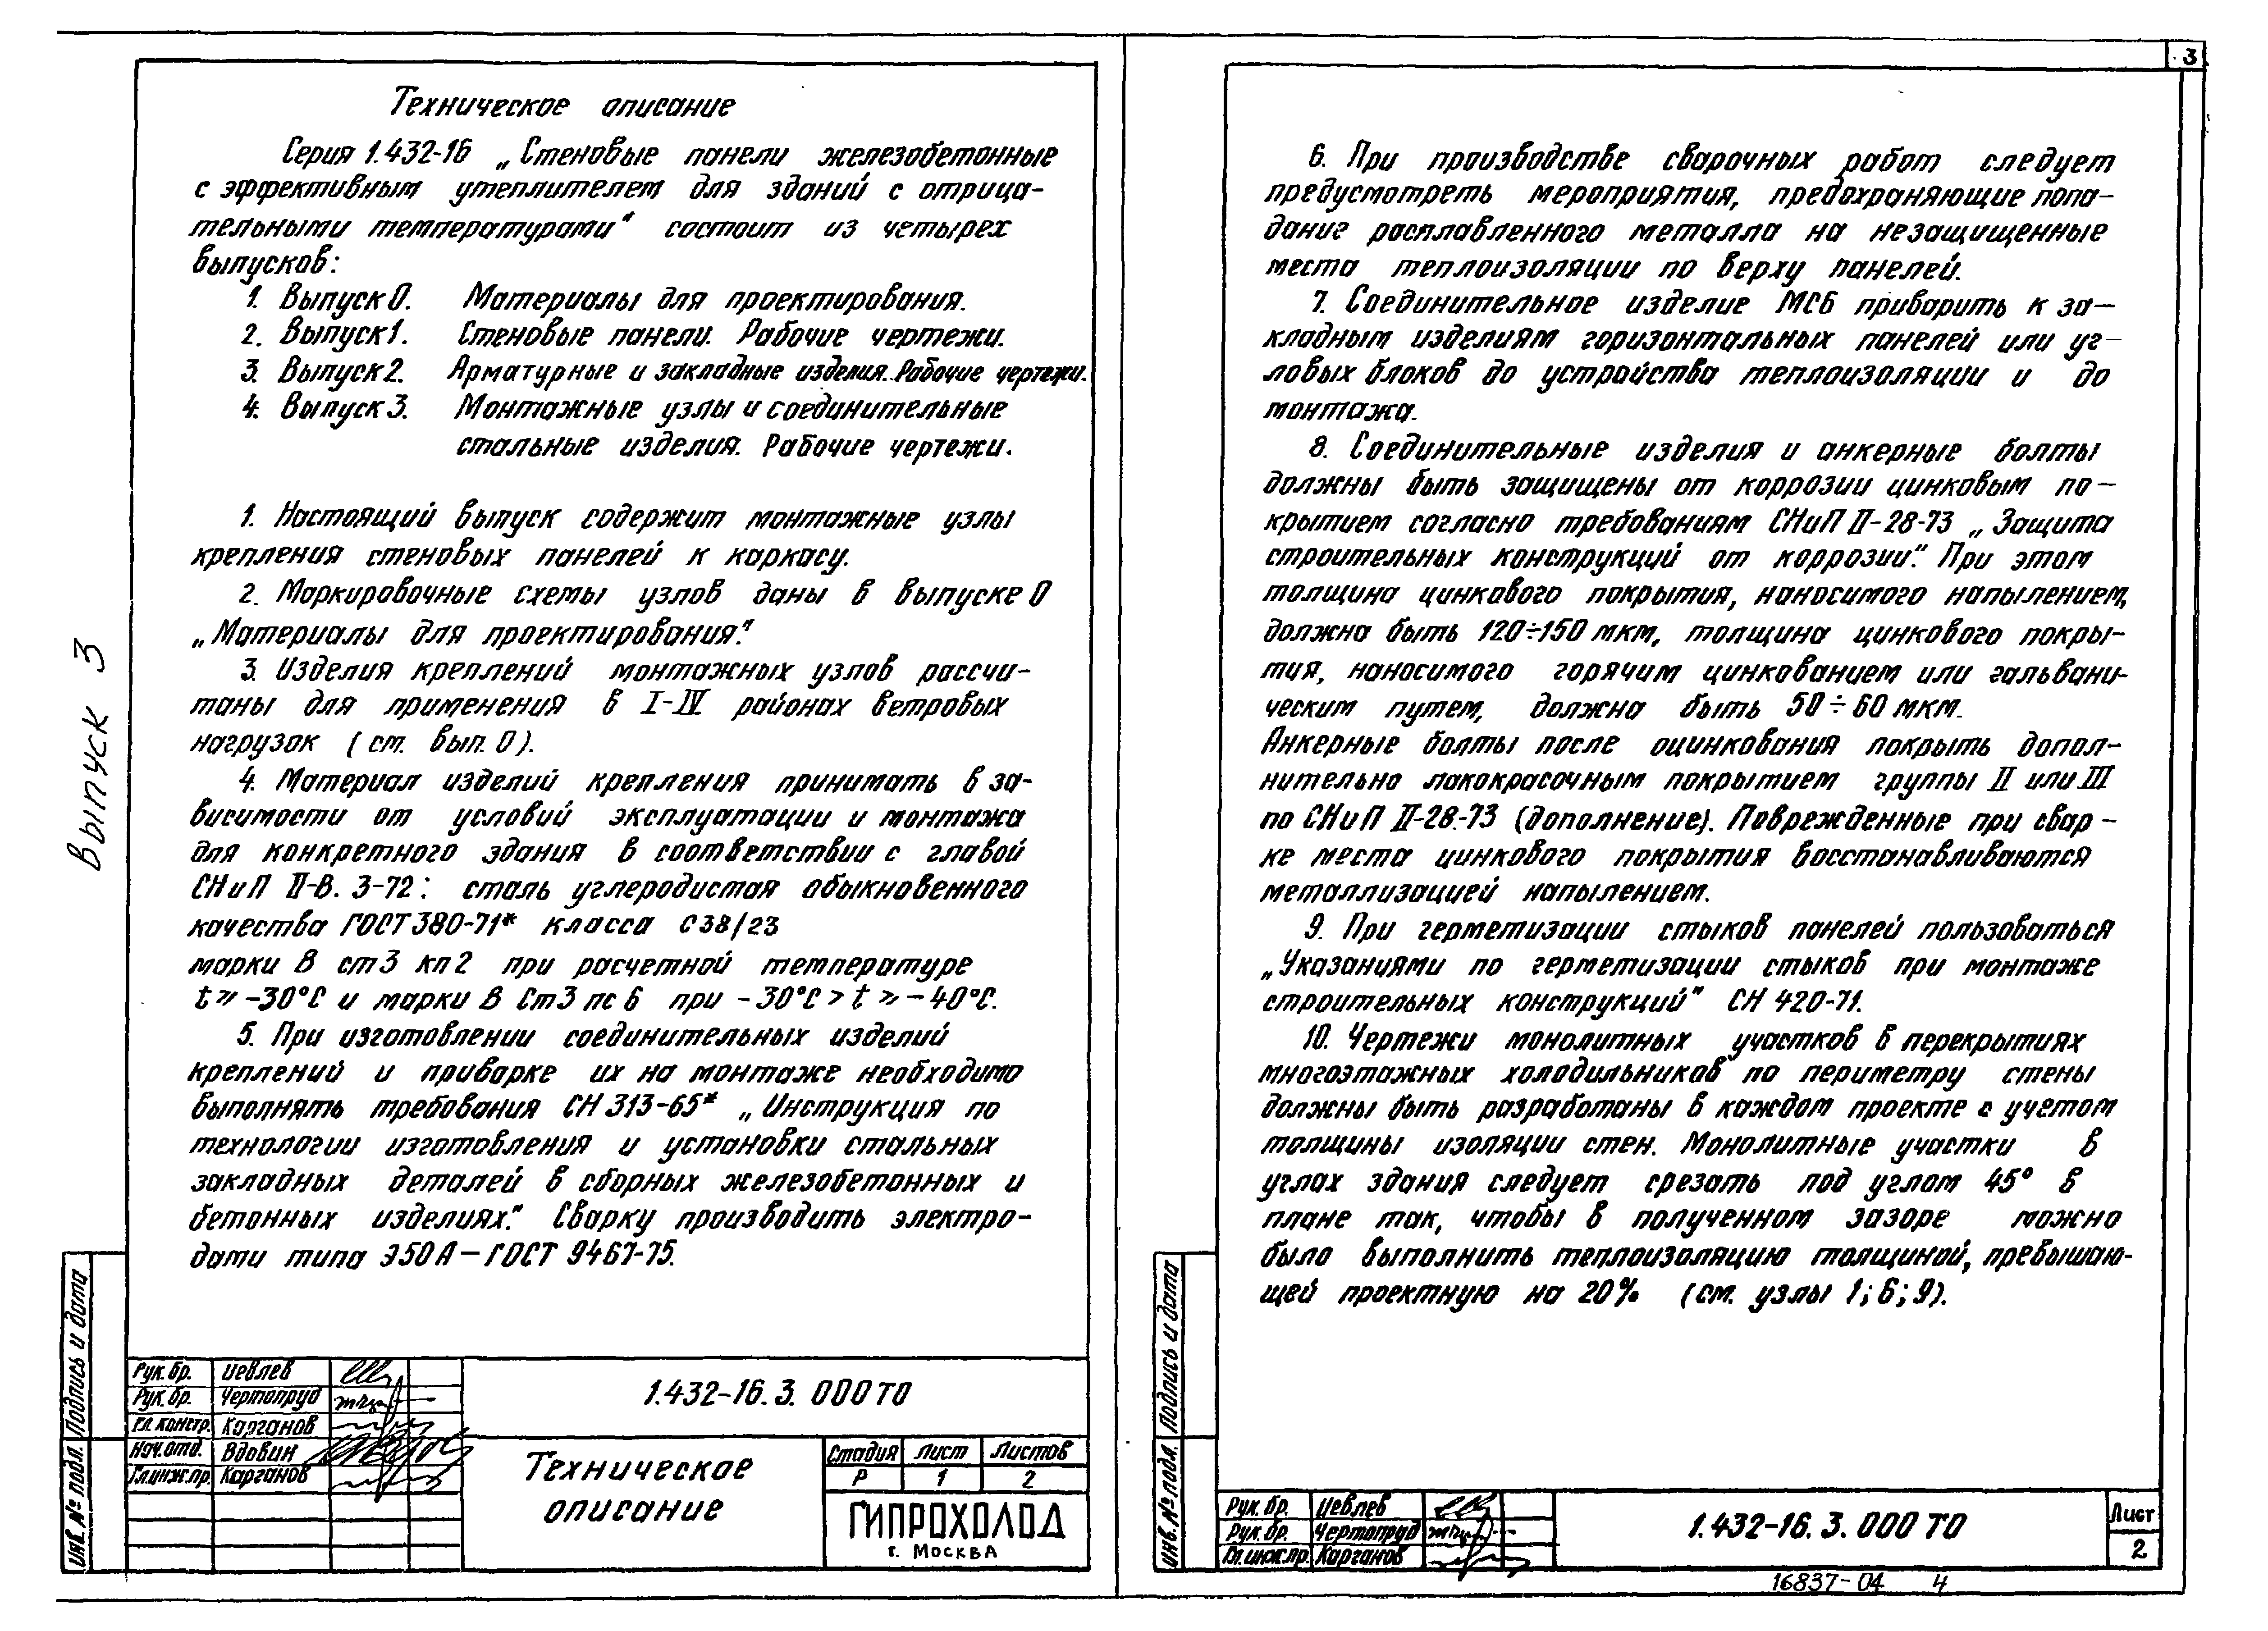 Техническое описание
Серия 1.432-16 „Стеновые панели железобетонные
с эффективным утеплителем для зданий с отрица-
тельными температурами" состоит из четырех
выпусков:
1. Выпуск 0. Материалы для проектирования.
2. Выпуск 1. Стеновые панели. Рабочие чертежи.
3. Выпуск 2. Арматурные и закладные изделия. Рабочие чертежи.
4. Выпуск 3. Монтажные узлы и соединительные
стальные изделия. Рабочие чертежи.
1. Настоящий выпуск содержит монтажные узлы
крепления стеновых панелей к каркасу.
2. Маркировочные схемы узлов даны в выпуске 0
„Материалы для проектирования".
3. Изделия креплений монтажных узлов рассчи-
таны для применения в I-IV районах ветровых
нагрузок (ст. вып. 0).
4. Материал изделий крепления принимать в за-
висимости от условий эксплуатации и монтажа
для конкретного здания в соответствии с главой
СНиП II-В. 3-72: сталь углеродистая обыкновенного
качества ГОСТ 380-71* класса С38/23
марки В ст3 кп2 при расчетной температуре
t ⩾ -30°С и марки В Ст3 пс 6 при -30°С > t ⩾ -40°С.
5. При изготовлении соединительных изделий
креплений и приварке их на монтаже необходимо
выполнять требования СН 313-65* „Инструкция по
технологии изготовления и установки стальных
закладных деталей в сборных железобетонных и
бетонных изделиях". Сварку производить электро-
дами типа Э50А — ГОСТ 9467-75.
Выпуск 3
Подпись и дата
Инв. № подл.
Рук. бр. Иевлев
Рук. бр. Чертопруд
Гл. констр. Карганов
Нач. отд. Вдовин
Гл.инж.пр. Карганов
1.432-16.3.000 ТО
Техническое
описание
Стадия Лист Листов
Р 1 2
ГИПРОХОЛОД
г. Москва
3
6. При производстве сварочных работ следует
предусмотреть мероприятия, предохраняющие попа-
дание расплавленного металла на незащищенные
места теплоизоляции по верху панелей.
7. Соединительное изделие МС6 приварить к за-
кладным изделиям горизонтальных панелей или уг-
ловых блоков до устройства теплоизоляции и до
монтажа.
8. Соединительные изделия и анкерные болты
должны быть защищены от коррозии цинковым по-
крытием согласно требованиям СНиП II-28-73 „Защита
строительных конструкций от коррозии". При этом
толщина цинкового покрытия, наносимого напылением,
должна быть 120÷150 мкм, толщина цинкового покры-
тия, наносимого горячим цинкованием или гальвани-
ческим путем, должна быть 50÷60 мкм.
Анкерные болты после оцинкования покрыть допол-
нительно лакокрасочным покрытием группы II или III
по СНиП II-28-73 (дополнение). Поврежденные при свар-
ке места цинкового покрытия восстанавливаются
металлизацией напылением.
9. При герметизации стыков панелей пользоваться
„Указаниями по герметизации стыков при монтаже
строительных конструкций" СН 420-71.
10. Чертежи монолитных участков в перекрытиях
многоэтажных холодильников по периметру стены
должны быть разработаны в каждом проекте с учетом
толщины изоляции стен. Монолитные участки в
углах здания следует срезать под углом 45° в
плане так, чтобы в полученном зазоре можно
было выполнить теплоизоляцию толщиной, превышаю-
щей проектную на 20% (см. узлы 1; 6; 9).
Подпись и дата
Инв. № подл.
Рук. бр. Иевлев
Рук. бр. Чертопруд
Гл.инж.пр. Карганов
1.432-16.3.000 ТО
Лист
2
16837-04 4